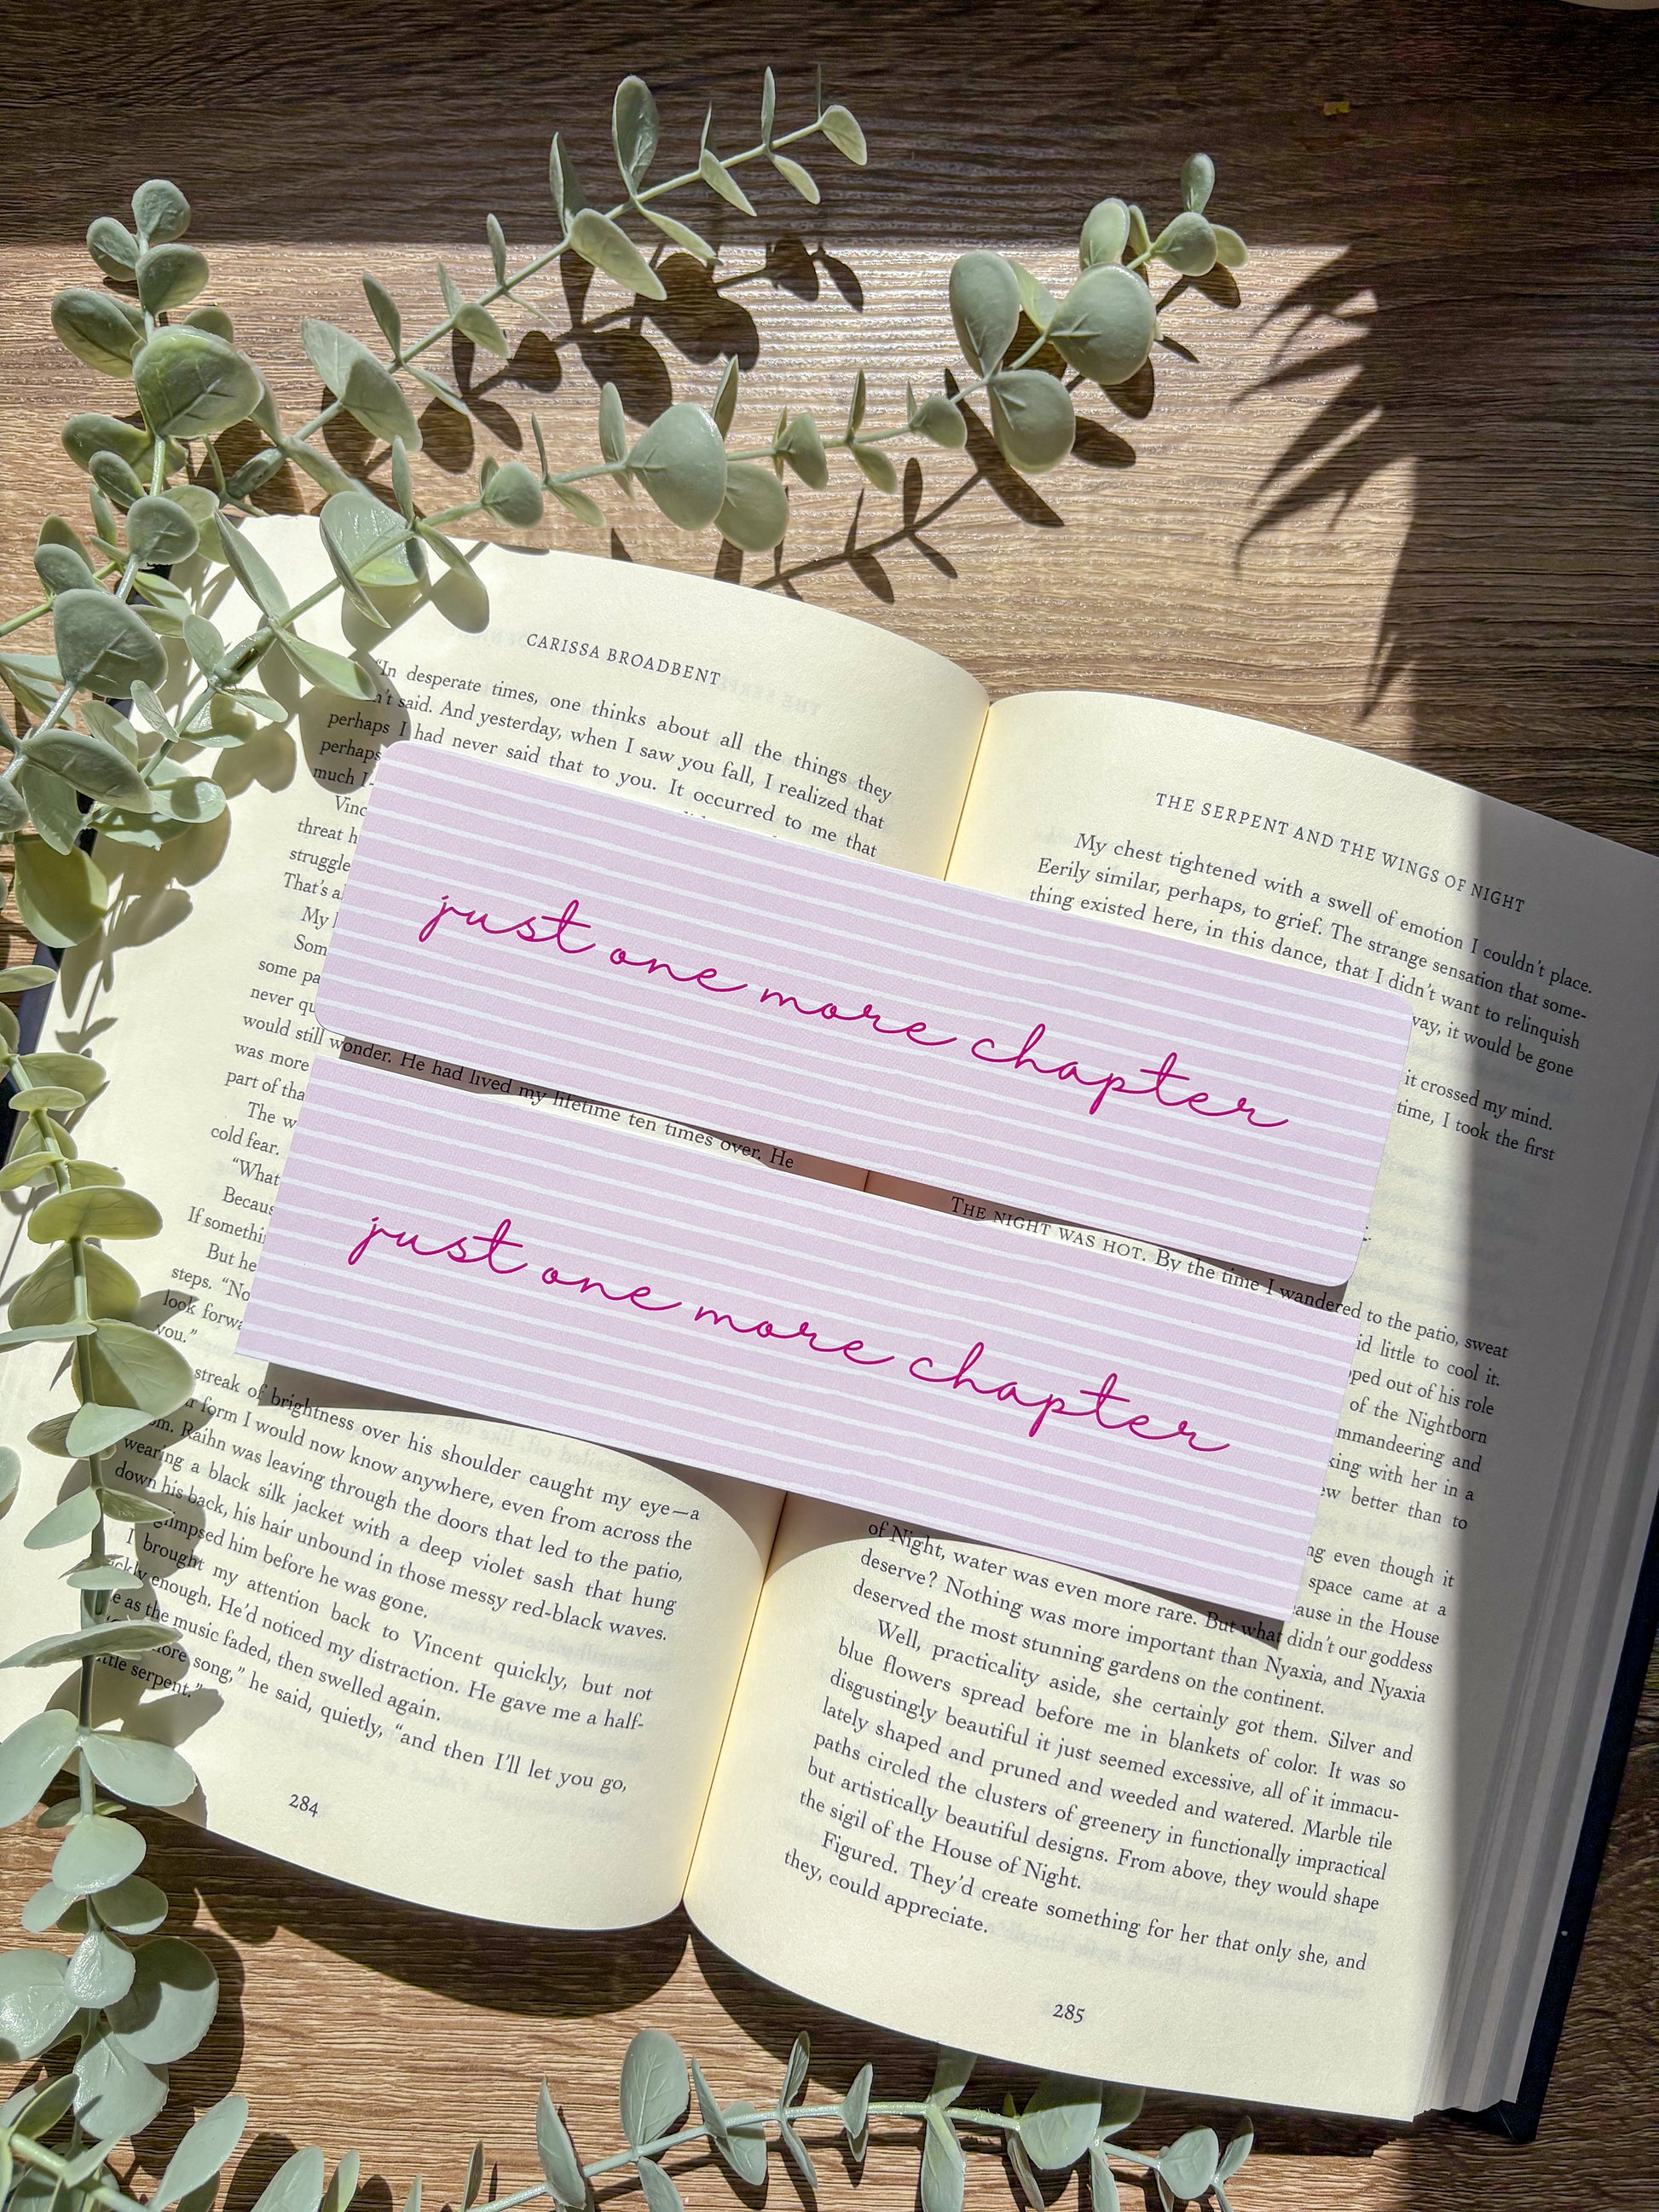 CARISSA BROADBENT
"In desperate times, one thinks about all the things they
said. And yesterday, when I saw you fall, I realized that
perhaps I had never said that to you. It occurred to me that
perhaps
much I
threat
struggle
That's
My
some
never
would still wonder. He had lived my lifetime ten times over. He
was more
part of
The
cold fear.
"What
If
But he
steps. "No
look
you."
streak of brightness over his shoulder caught my eye—a
form I would now know anywhere, even from across the
Raihn was leaving through the doors that led to the patio,
wearing a black silk jacket with a deep violet sash that hung
down his back, his hair unbound in those messy red-black waves.
glimpsed him before he was gone.
I brought my attention back to Vincent quickly, but not
enough. He'd noticed my distraction. He gave me a half-
as the music faded, then swelled again.
song," he said, quietly, "and then I'll let you go,
serpent."
284
just one more chapter
just one more chapter
THE SERPENT AND THE WINGS OF NIGHT
My chest tightened with a swell of emotion I couldn't place.
Eerily similar, perhaps, to grief. The strange sensation that some-
thing existed here, in this dance, that I didn't want to relinquish
it would be gone
it crossed my mind.
time, I took the first
THE NIGHT WAS HOT. By the time I wandered to the patio, sweat
little to cool it.
out of his role
of the Nightborn
and
with her in a
better than to
even though it
space came at a
in the House
of Night, water was even more rare. But what didn't our goddess
deserve? Nothing was more important than Nyaxia, and Nyaxia
deserved the most stunning gardens on the continent.
Well, practicality aside, she certainly got them. Silver and
blue flowers spread before me in blankets of color. It was so
disgustingly beautiful it just seemed excessive, all of it immacu-
lately shaped and pruned and weeded and watered. Marble tile
paths circled the clusters of greenery in functionally impractical
but artistically beautiful designs. From above, they would shape
the sigil of the House of Night.
Figured. They'd create something for her that only she, and
they, could appreciate.
285